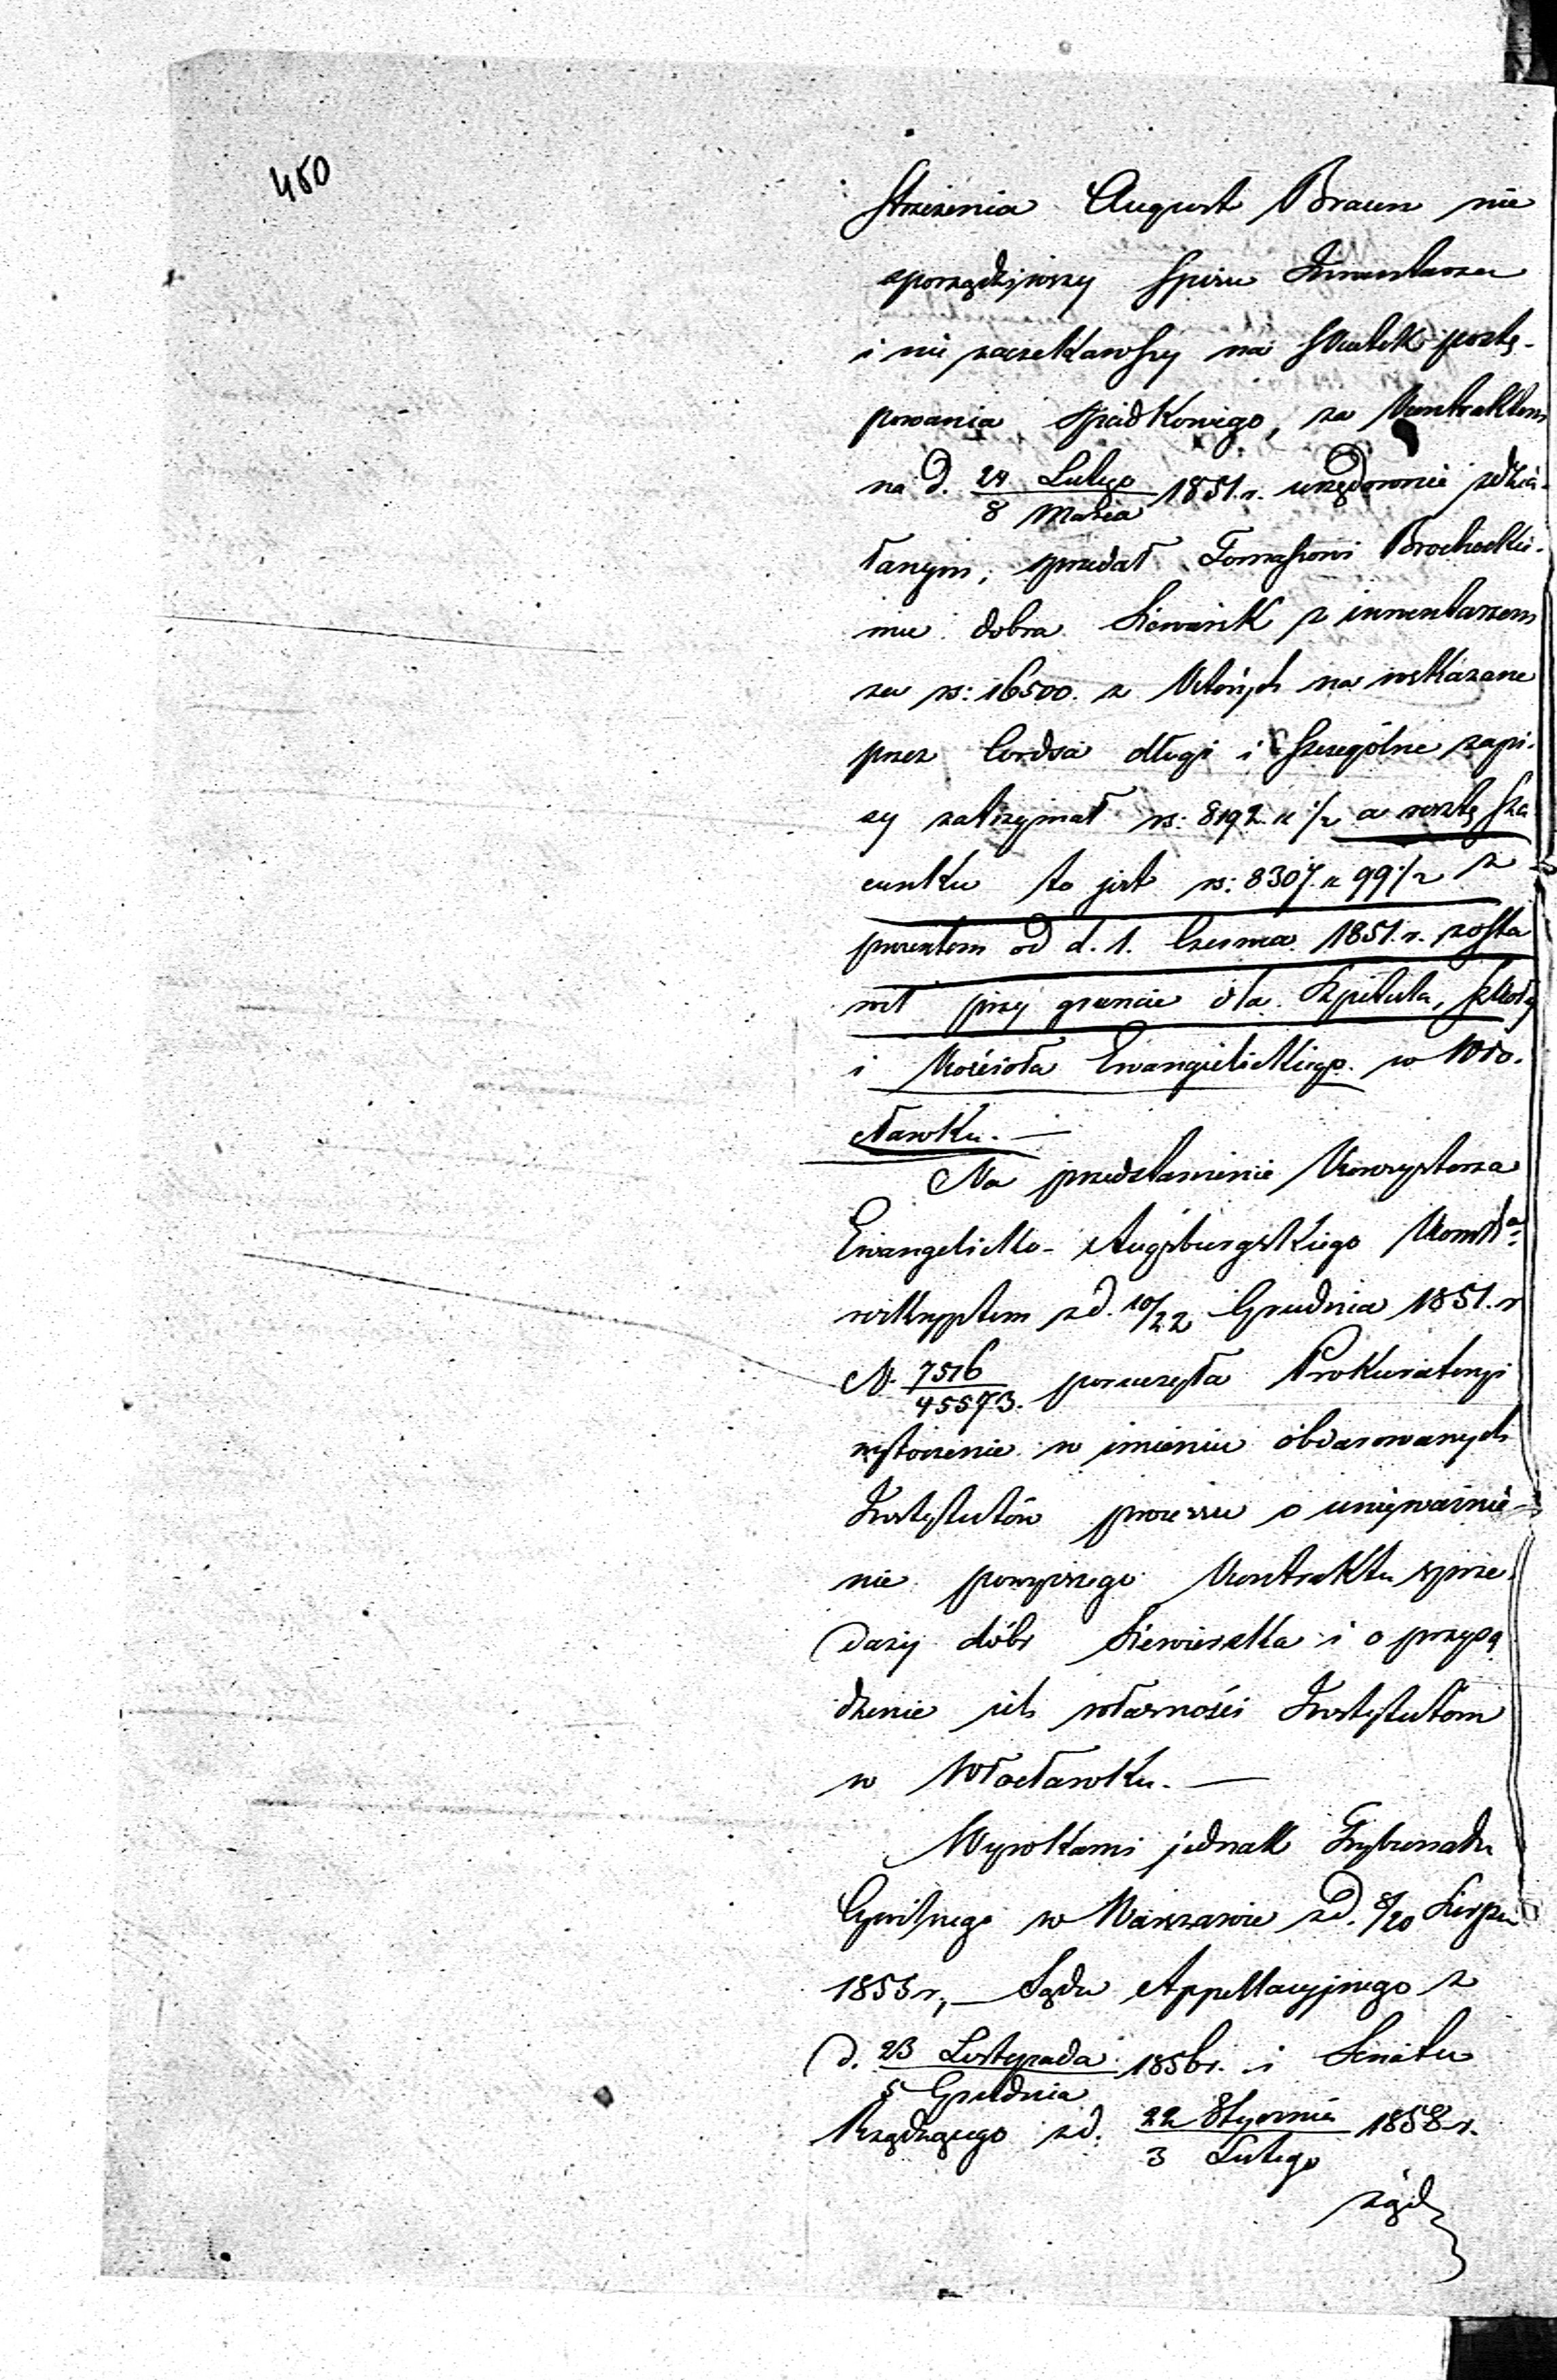 450
strzeżenia August Braun nie
sporządziwszy spisu Inwentarza
i nie zaczekawszy na skutek postę-
powania spadkowego, za Kontraktem
na d. 24 Lutego / 8 Marca 1851. r. urzędownie zdzia-
łanym, sprzedał Tomaszowi Brochockie-
mu dobra Siewiersk z inwentarzem
za rs: 16500. z których na wskazane
przez Cordsa długi i szczególne zapi-
sy zatrzymał rs: 8192 k ½ a resztę sza
cunku to jest rs: 8307 k 99½ z
procentem od d. 1. Czerwca 1851. r. zosta
wił przy gruncie dla Szpitala, szkoły
i Kościoła Ewangielickiego w Wło-
cławku. —
Na przedstawienie Konsystorza
Ewangelicko-Augsburgskiego
reskryptem z d. 10/22 Grudnia 1851. r
N. 7516 / 45573. poruczyła Prokuratoryi
wytoczenie w imieniu obdarowanych
Instytutów processu o unieważnie-
nie powyższego Kontraktu sprze-
daży dóbr Siewierska i o przysą
dzenie ich własności Instytutom
w Włocławku. —
Wyrokami jednak Trybunału
Cywilnego w Warszawie z d. 8/20 Sierpn
1853 r, — Sądu Appellacyjnego z
d. 23 Listopada / 5 Grudnia 1856 r. i Senatu
Rządzącego z d: 22 Stycznia / 3 Lutego 1858 r.